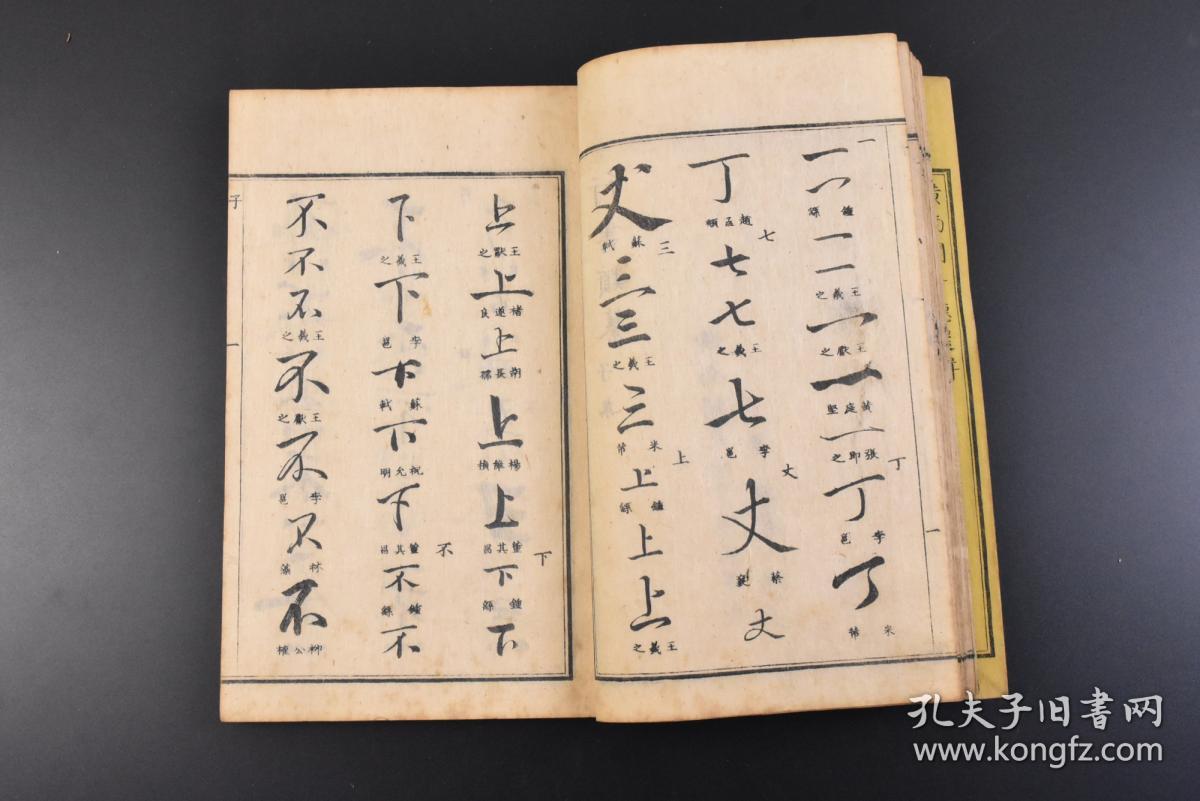 一 一 一 鍾繇 一 一 王羲之 一 王獻之 一 黃庭堅 一 張即之 丁 丁 李邕 丁 米芾
丁 趙孟頫 七 七 七 王羲之 七 李邕 丈 丈 蔡襄 丈
丈 蘇軾 三 三 三 王羲之 三 米芾 上 上 鍾繇 上 上 王羲之
上 王獻之 上 褚遂良 上 胡長孺 上 楊維楨 上 董其昌 下 下 鍾繇 下
下 王羲之 下 李邕 下 蘇軾 下 祝允明 下 董其昌 不 不 鍾繇 不
不 不 不 王羲之 不 王獻之 不 李邕 不 林藻 不 柳公權
子 一
孔夫子旧書网
www.kongfz.com